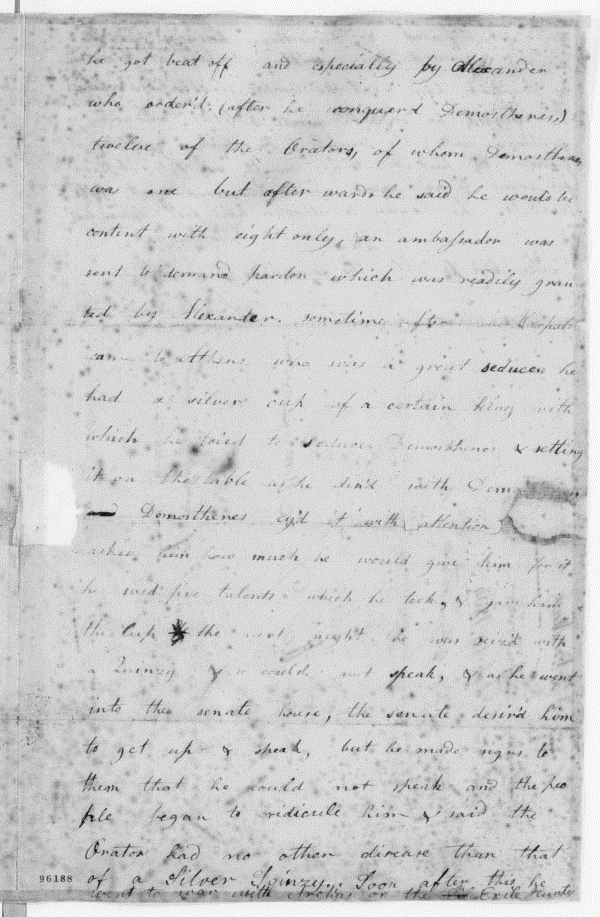 he got beat off and especially by Alexander
who order'd (after he conquerd Demosthenes)
twelve of the Orators, of whom Demosthenes
was one but after wards he said he would be
content with eight only, an ambassador was
sent to demand pardon which was readily gran
ted by Alexander. sometime after
came to Athens who was a great seducer he
had a silver cup of a certain King with
which he tried to seduce Demosthenes & setting
it on the table as he din'd with Dem
Demosthenes ey'd it with attention
asked him how much he would give him for it
he said five talents which he took, & gave him
the Cup the next night he was seiz'd with
a Quinzy & so could not speak, & as he went
into the senate house, the senate desir'd him
to get up & speak, but he made signs to
them that he could not speak and the peo
ple began to ridicule him & said the
Orator had no other disease than that
of a Silver Quinzy. Soon after this he
went to war with or the Exile
96188